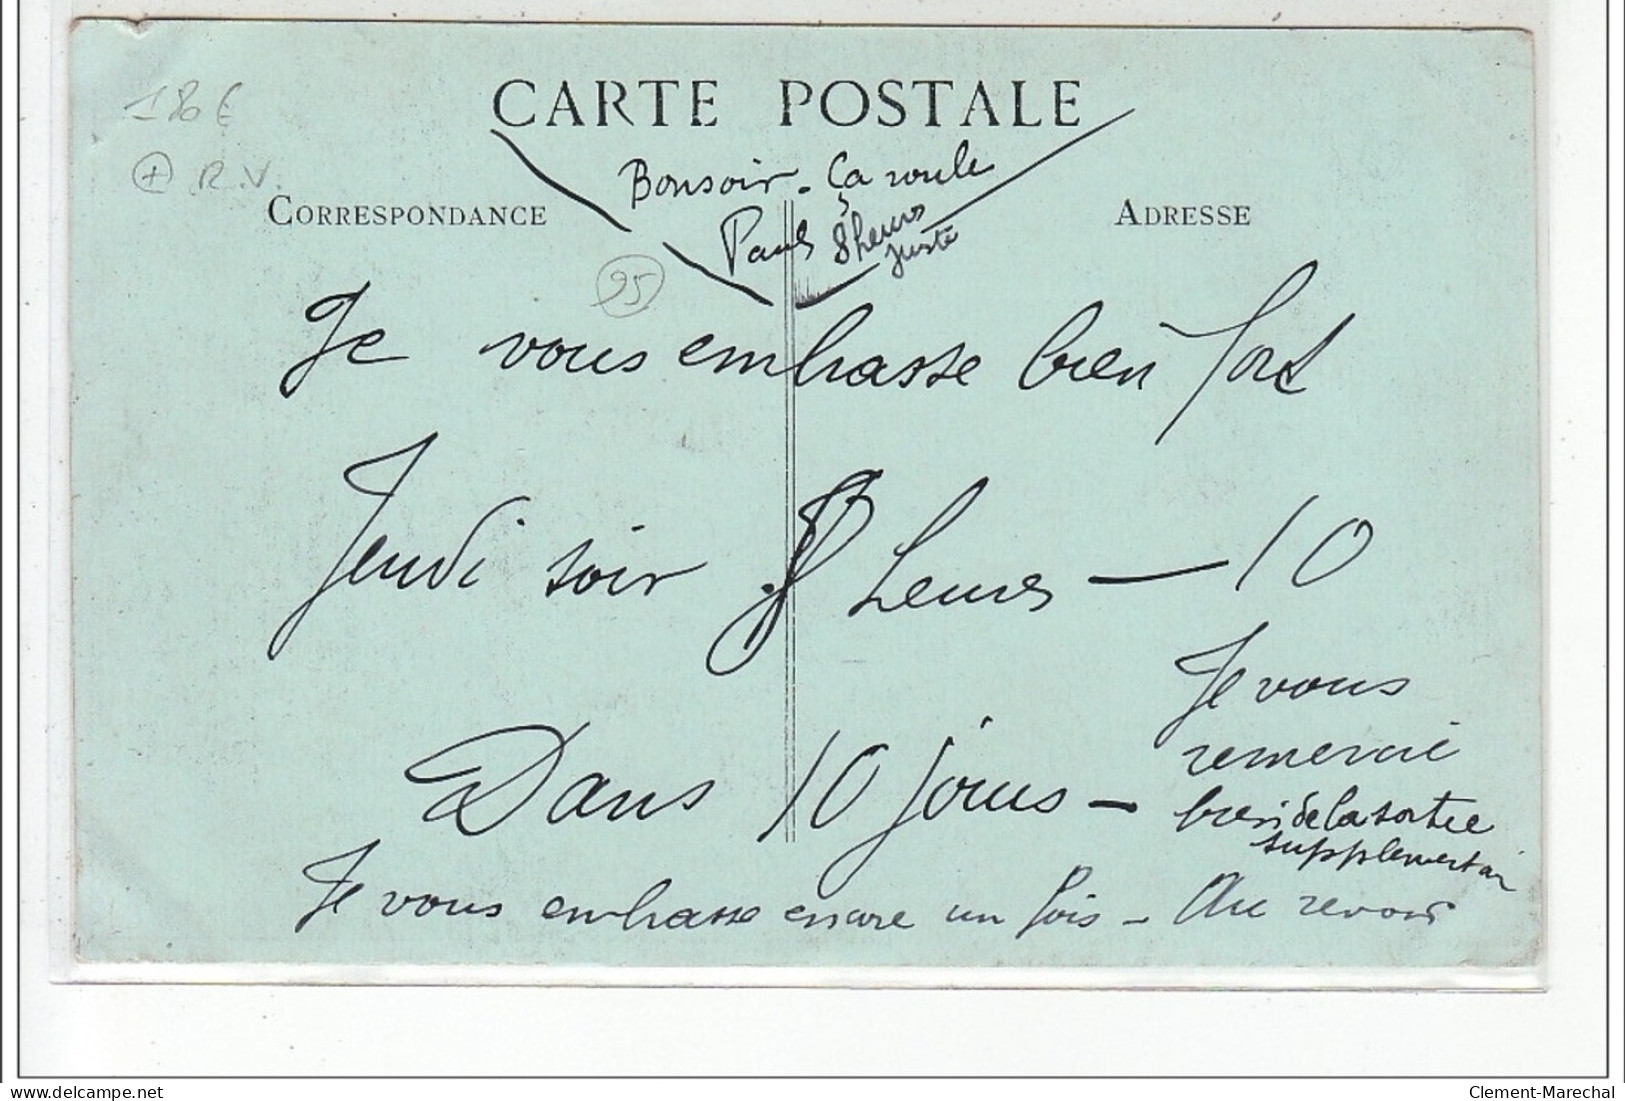 CARTE POSTALE
180€
+ R.V.
Bonsoir - Ça roule
CORRESPONDANCE
ADRESSE
Paul 8 heures
juste
95
Je vous embrasse bien fort
Jeudi soir 8 heures — 10
Je vous
Dans 10 jours —
remercie
bien de la sortie
supplementair
Je vous embrasse encore un fois - Au revoir
Clement-Marechal